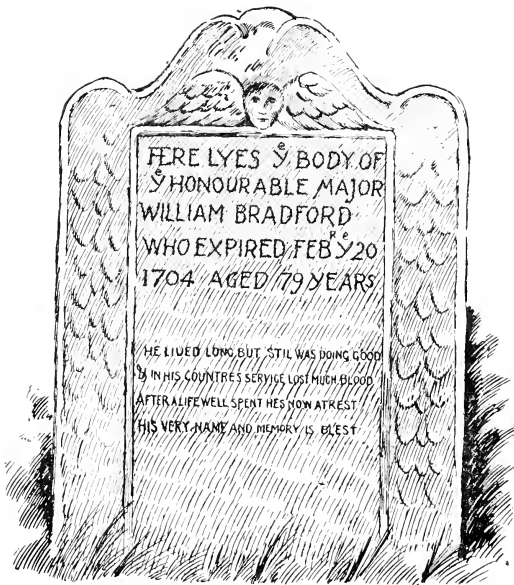 HERE LYES yᵉ BODY OF
yᵉ HONOURABLE MAJOR
WILLIAM BRADFORD
WHO EXPIRED FEBᴿ yᵉ 20
1704 AGED 79 YEARS
HE LIUED LONG BUT STIL WAS DOING GOOD
& IN HIS COUNTRES SERVICE LOST MUCH BLOOD
AFTER A LIFE WELL SPENT HES NOW AT REST
HIS VERY NAME AND MEMORY IS BLEST